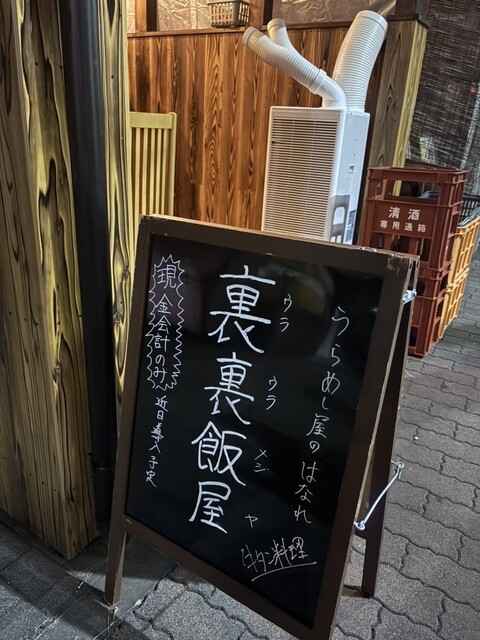 うらめし屋のはなれ
料理
ウラ ウラ メシ ヤ
裏裏飯屋
現金会計のみ
近日導入予定
清酒
専用通箱